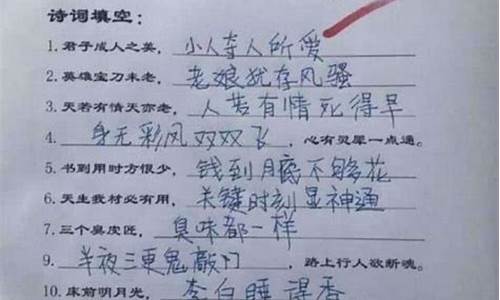 诗词填空：
1. 君子成人之美， 小人夺人所爱
2. 英雄宝刀未老， 老娘犹存风骚
3. 天若有情天亦老， 人若有情死得早
4. 身无彩凤双双飞 ，心有灵犀一点通。
5. 书到用时方恨少， 钱到月底不够花
6. 天生我材必有用， 关键时刻显神通
7. 三个臭皮匠， 臭味都一样
9. 半夜三更鬼敲门 ，路上行人欲断魂。
10. 床前明月光， 李白睡得香